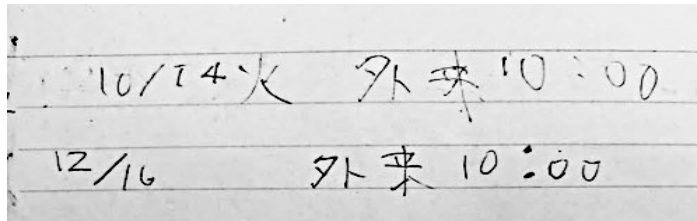 10/14火 外来10:00
12/16 外来10:00